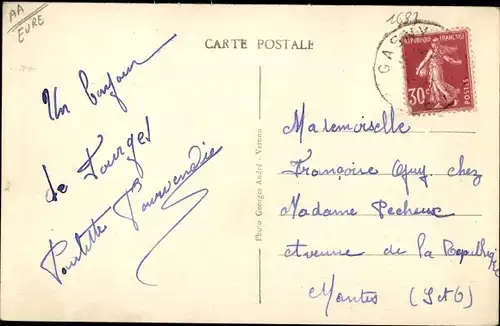 AA
EURE
1681
CARTE POSTALE
GASNY
REPUBLIQUE FRANÇAISE
30c
POSTES
Un bonjour
de Fourges
Paulette
Photo Georges André - Vernon
Mademoiselle
Françoise chez
Madame Pecheux
Avenue de la République
Mantes (S&O)